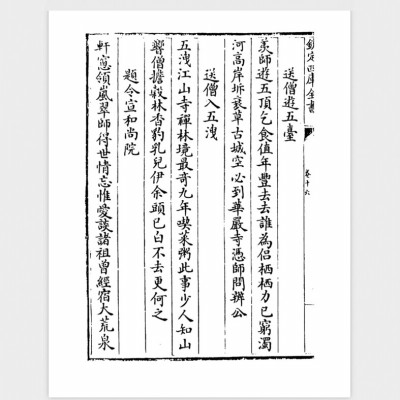 欽定四庫全書
卷十六
送僧遊五臺
羨師遊五頂乞食值年豐去去誰為侶栖栖力已窮濁
河高岸坼衰草古城空必到華嚴寺憑師問辨公
送僧入五洩
五洩江山寺禪林境最奇九年喫菜粥此事少人知山
響僧擔穀林香豹乳兒伊余頭已白不去更何之
題令宣和尚院
軒窓領嵐翠師得世情忘惟愛談諸祖曾經宿大荒泉